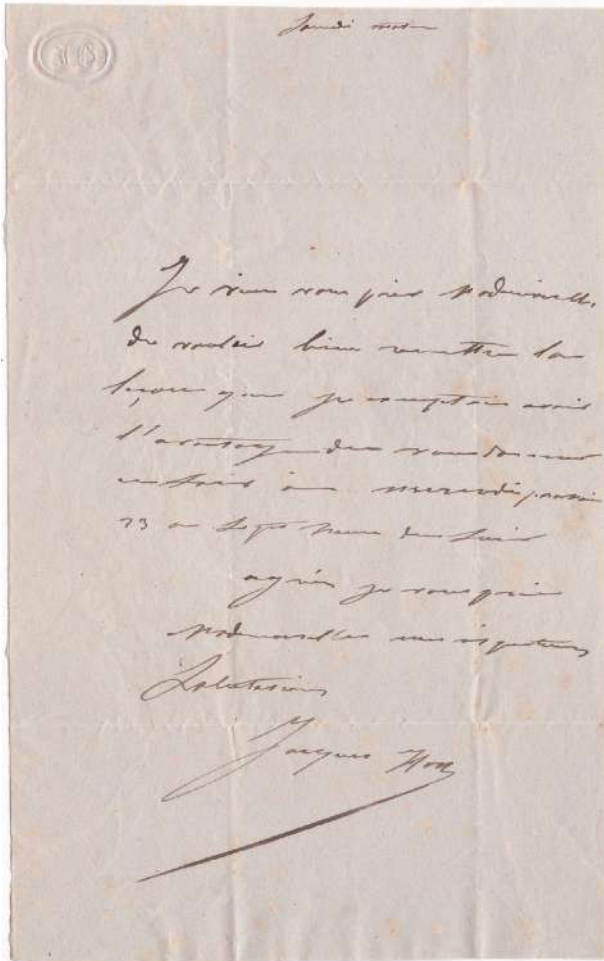 matin
Je viens vous prier Mademoiselle
de vouloir bien remettre la
leçon que je comptais avoir
l'avantage de vous donner
ce soir à mercredi prochain
23 à sept heure du soir
agréez je vous prie
Mademoiselle mes respectueuses
Salutations
Jacques